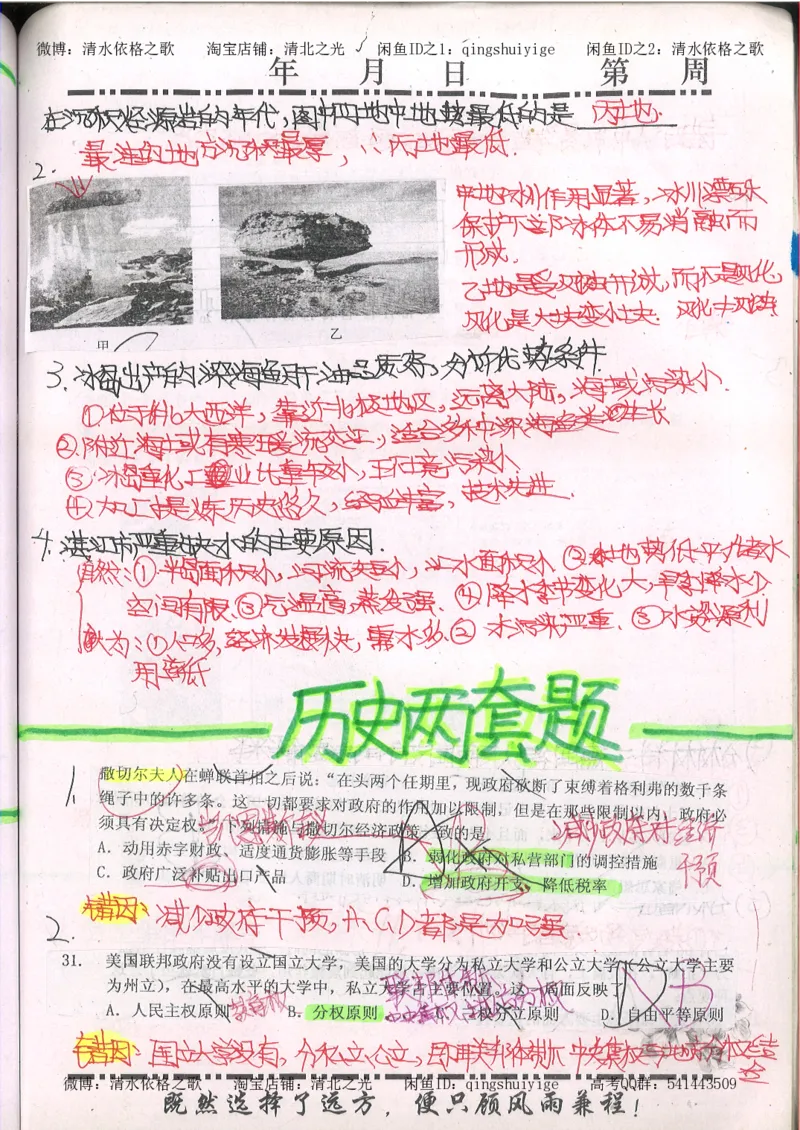 微博：清水依格之歌 淘宝店铺：清北之光 闲鱼ID之1：qingshuiyige 闲鱼ID之2：清水依格之歌
年 月 日 第 周
在沉积烃源岩的年代，图中四地中地势最低的是 丙地.
最洼的地方沉积最厚，∴丙地最低.
2.
甲地冰川作用显著，冰川漂砾
保护下部冰体不易消融而
形成.
乙地是受风蚀形成，而不是风化，
风化是大块变小块. 风化≠风蚀
甲 乙
3. 冰岛出产的深海鱼用于油品质好，分析优势条件.
①位于北大西洋，靠近北极地区，远离大陆，海域污染小.
②附近海域有寒暖流交汇，适合多种深海鱼类生长
③冰岛重化工业比重较小，王环境污染小
④加工提炼历史悠久，经验丰富，技术先进.
4. 湛江市严重缺水的主要原因.
自然：①半岛面积小，河流短小，汇水面积小 ②地势低平，储水
空间有限 ③气温高，蒸发强. ④降水季节变化大，旱季降水少
人为：①人口多，经济发展快，需水多 ②水污染严重. ③水资源利
用率低
历史两套题
1. 撒切尔夫人在蝉联首相之后说：“在头两个任期里，现政府砍断了束缚着格利弗的数千条
绳子中的许多条。这一切都要求对政府的作用加以限制，但是在那些限制以内，政府必
须具有决定权。”下列措施与撒切尔经济政策一致的是
减少政府对经济
干预
A．动用赤字财政、适度通货膨胀等手段 B．弱化政府对私营部门的调控措施
C．政府广泛补贴出口产品 D．增加政府开支、降低税率
错因：减少政府干预，A、C、D都是加强
2.
31. 美国联邦政府没有设立国立大学，美国的大学分为私立大学和公立大学（公立大学主要
为州立），在最高水平的大学中，私立大学占主要位置。这一局面反映了
A．人民主权原则 B．分权原则 C．三权分立原则 D．自由平等原则
错因：国立大学没有，分私立、公立，即联邦体制，中央集权与地方分权结
合
微博：清水依格之歌 淘宝店铺：清北之光 闲鱼ID：qingshuiyige 高考QQ群：541443509
既然选择了远方，便只顾风雨兼程！